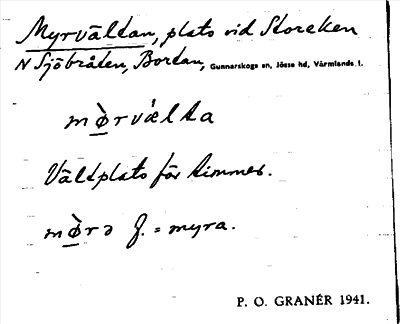 Myrvältan, plats vid Storeken
N Sjöbråten, Bortan, Gunnarskogs sn, Jösse hd, Värmlands l.
mø̀rvæ̀lta
Vältplats för timmer.
mø̀rə f. = myra.
P. O. GRANÉR 1941.